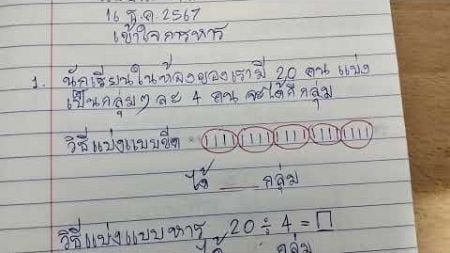 16 ธ.ค. 2567
เข้าใจการหาร
1. นักเรียนในห้องของเรามี 20 คน แบ่ง
เป็นกลุ่มๆ ละ 4 คน จะได้กี่กลุ่ม
วิธีแบ่งแบบขีด
ได้ ___ กลุ่ม
วิธีแบ่งแบบหาร 20 ÷ 4 = □
ได้ กลุ่ม